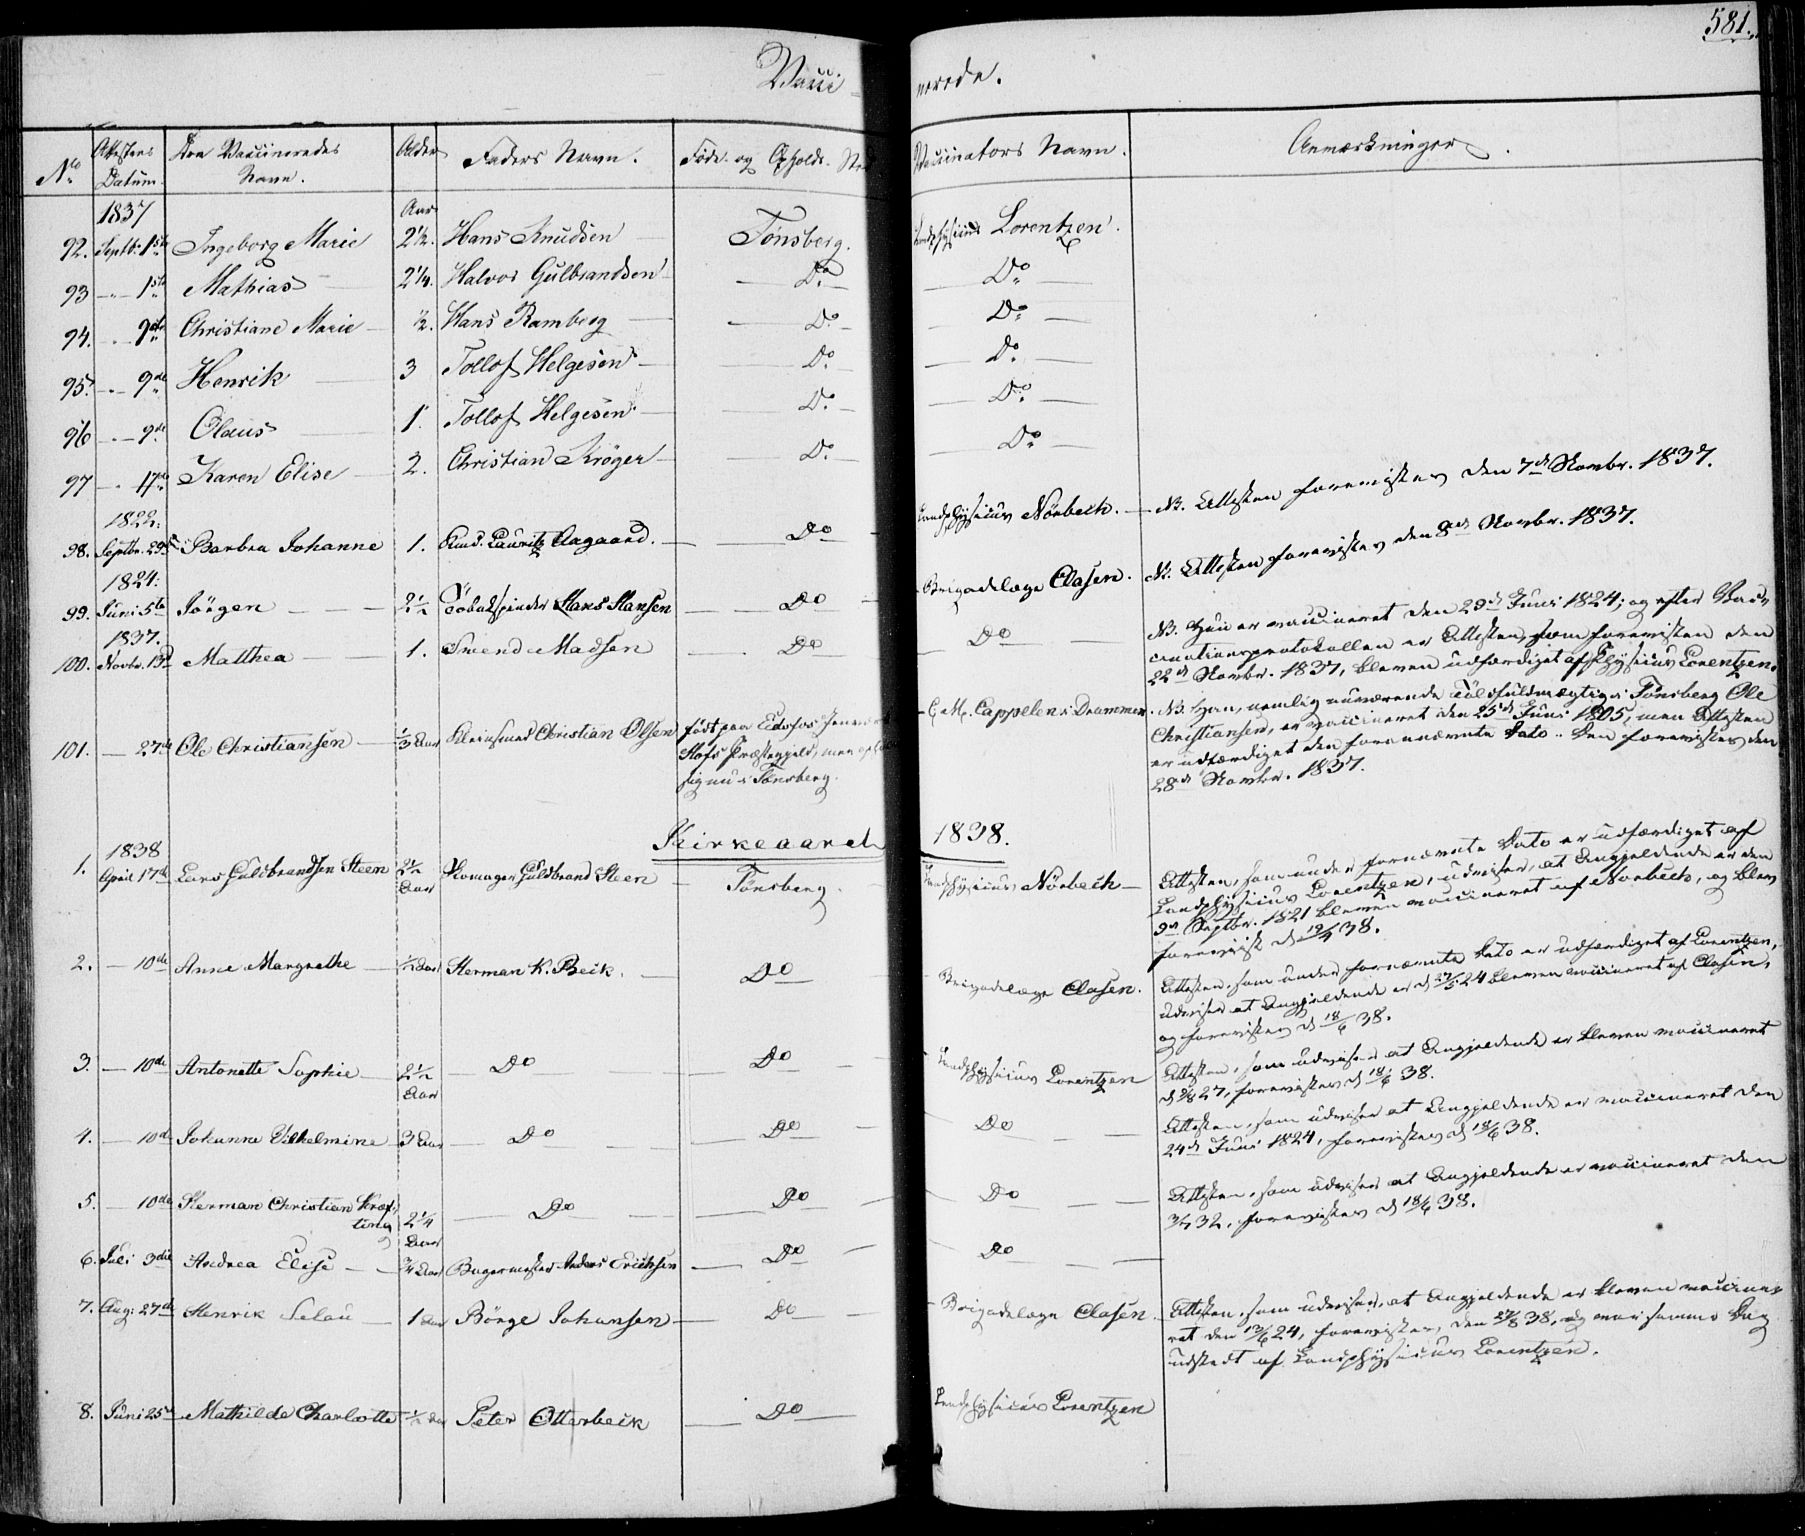 581.
Vacci-
nerede.
No.
Attestens
Datum.
Den Vaccineredes
Navn.
Alder
Faders Navn.
Føde- og Opholds-Sted
Vaccinators Navn.
Anmærkninger.
1837
Aar
92. Septb: 1ste Ingeborg Marie 2½. Hans Knudsen Tønsberg. Landphysicus Lorentzen.
93 - - 1ste Mathias 2¼. Halvor Gulbrandsen Do Do
94. - - 9de Christiane Marie ½. Hans Ramberg Do Do
95. - - 9de Henrik 3 Tollof Helgesen Do Do
96 - - 9de Olaus 1. Tollof Helgesen Do Do
97 - - 17de Karen Elise 2. Christian Krøger Do Do
1822:
98. Septbr. 29de Barbra Johanne 1. Lauritz Aagaard. Do Landphysicus Nörbech. NB. Attesten forevistes den 7de Novbr. 1837.
1824:
99. Juni 5te Jörgen 2½ Tobakspinder Hans Hansen Do Brigadelæge Clasen. NB. Attesten forevistes den 8de Novbr. 1837.
1837.
100. Novbr. 13de Matthea 1. Svend Madsen Do Do NB. Hun er vaccineret den 29de Juni 1824; og efter Vacci-
nationsprotokollen er Attesten, som forevistes den
22de Novbr. 1837, bleven udfærdiget af Physicus Lorentzen.
101. - 27de Ole Christiansen ⅓ Aar Kleinsmed Christian Olsen født paa Eidsfos Jernværk
Hofs Præstegjeld, men op
sig nu i Tønsberg.
C. M. Cappelen i Drammen. NB. Han, nemlig nuværende Toldfuldmægtig i Tønsberg Ole
Christiansen, er vaccineret den 25de Juni 1805, men Attesten
er udfærdiget den forannævnte Dato. Den forevistes den
28de Novbr. 1837.
Kirkeaaret 1838.
1838
1. April 17de Lars Guldbrandsen Steen 2½ Aar Skomager Guldbrand Steen Tønsberg. Landphysicus Nörbech Attesten, som under fornævnte Dato er udfærdiget af
Landphysicus Lorentzen, udviser, at Angjeldende er den
9de Septbr. 1821 bleven vaccineret af Nörbech, og blev
forevist d 38.
2. - 10de Anne Margrethe ½ Aar Herman K. Beck. Do Brigadelæge Clasen. Attesten, som under fornævnte Dato er udfærdiget af Lorentzen,
udviser at Angjeldende er d 24 bleven vaccineret af Clasen,
og forevistes d 18/6 38.
3. - 10de Antonette Sophie 2½ Aar Do Do Landphysicus Lorentzen Attesten, som udviser at Angjeldende er bleven vaccineret
d 27, forevistes d 18/6 38.
4. - 10de Johanne Vilhelmine 3 Aar Do Do Do Attesten, som udviser at Angjeldende er vaccineret den
24de Juni 1824, forevistes d 18/6 38.
5. - 10de Herman Christian Kræf-
ting 2¼ Aar Do Do Do Attesten, som udviser at Angjeldende er vaccineret den
32, forevistes d 18/6 38.
6. Juli 3die Andrea Elise ¾ Aar Bagermester Anders Erichsen Do Do
7. Aug: 27de Henrik Selau 1 Aar Börge Johansen Do Brigadelæge Clasen. Attesten, som udviser, at Angjeldende er bleven vaccine-
ret den 24, forevistes den 27/8 38, og var samme Dag
udstedt af Landphysicus Lorentzen.
8. Juni 25de Mathilde Charlotte ½ Aar Peter Otterbeck Do Landphysicus Lorentzen